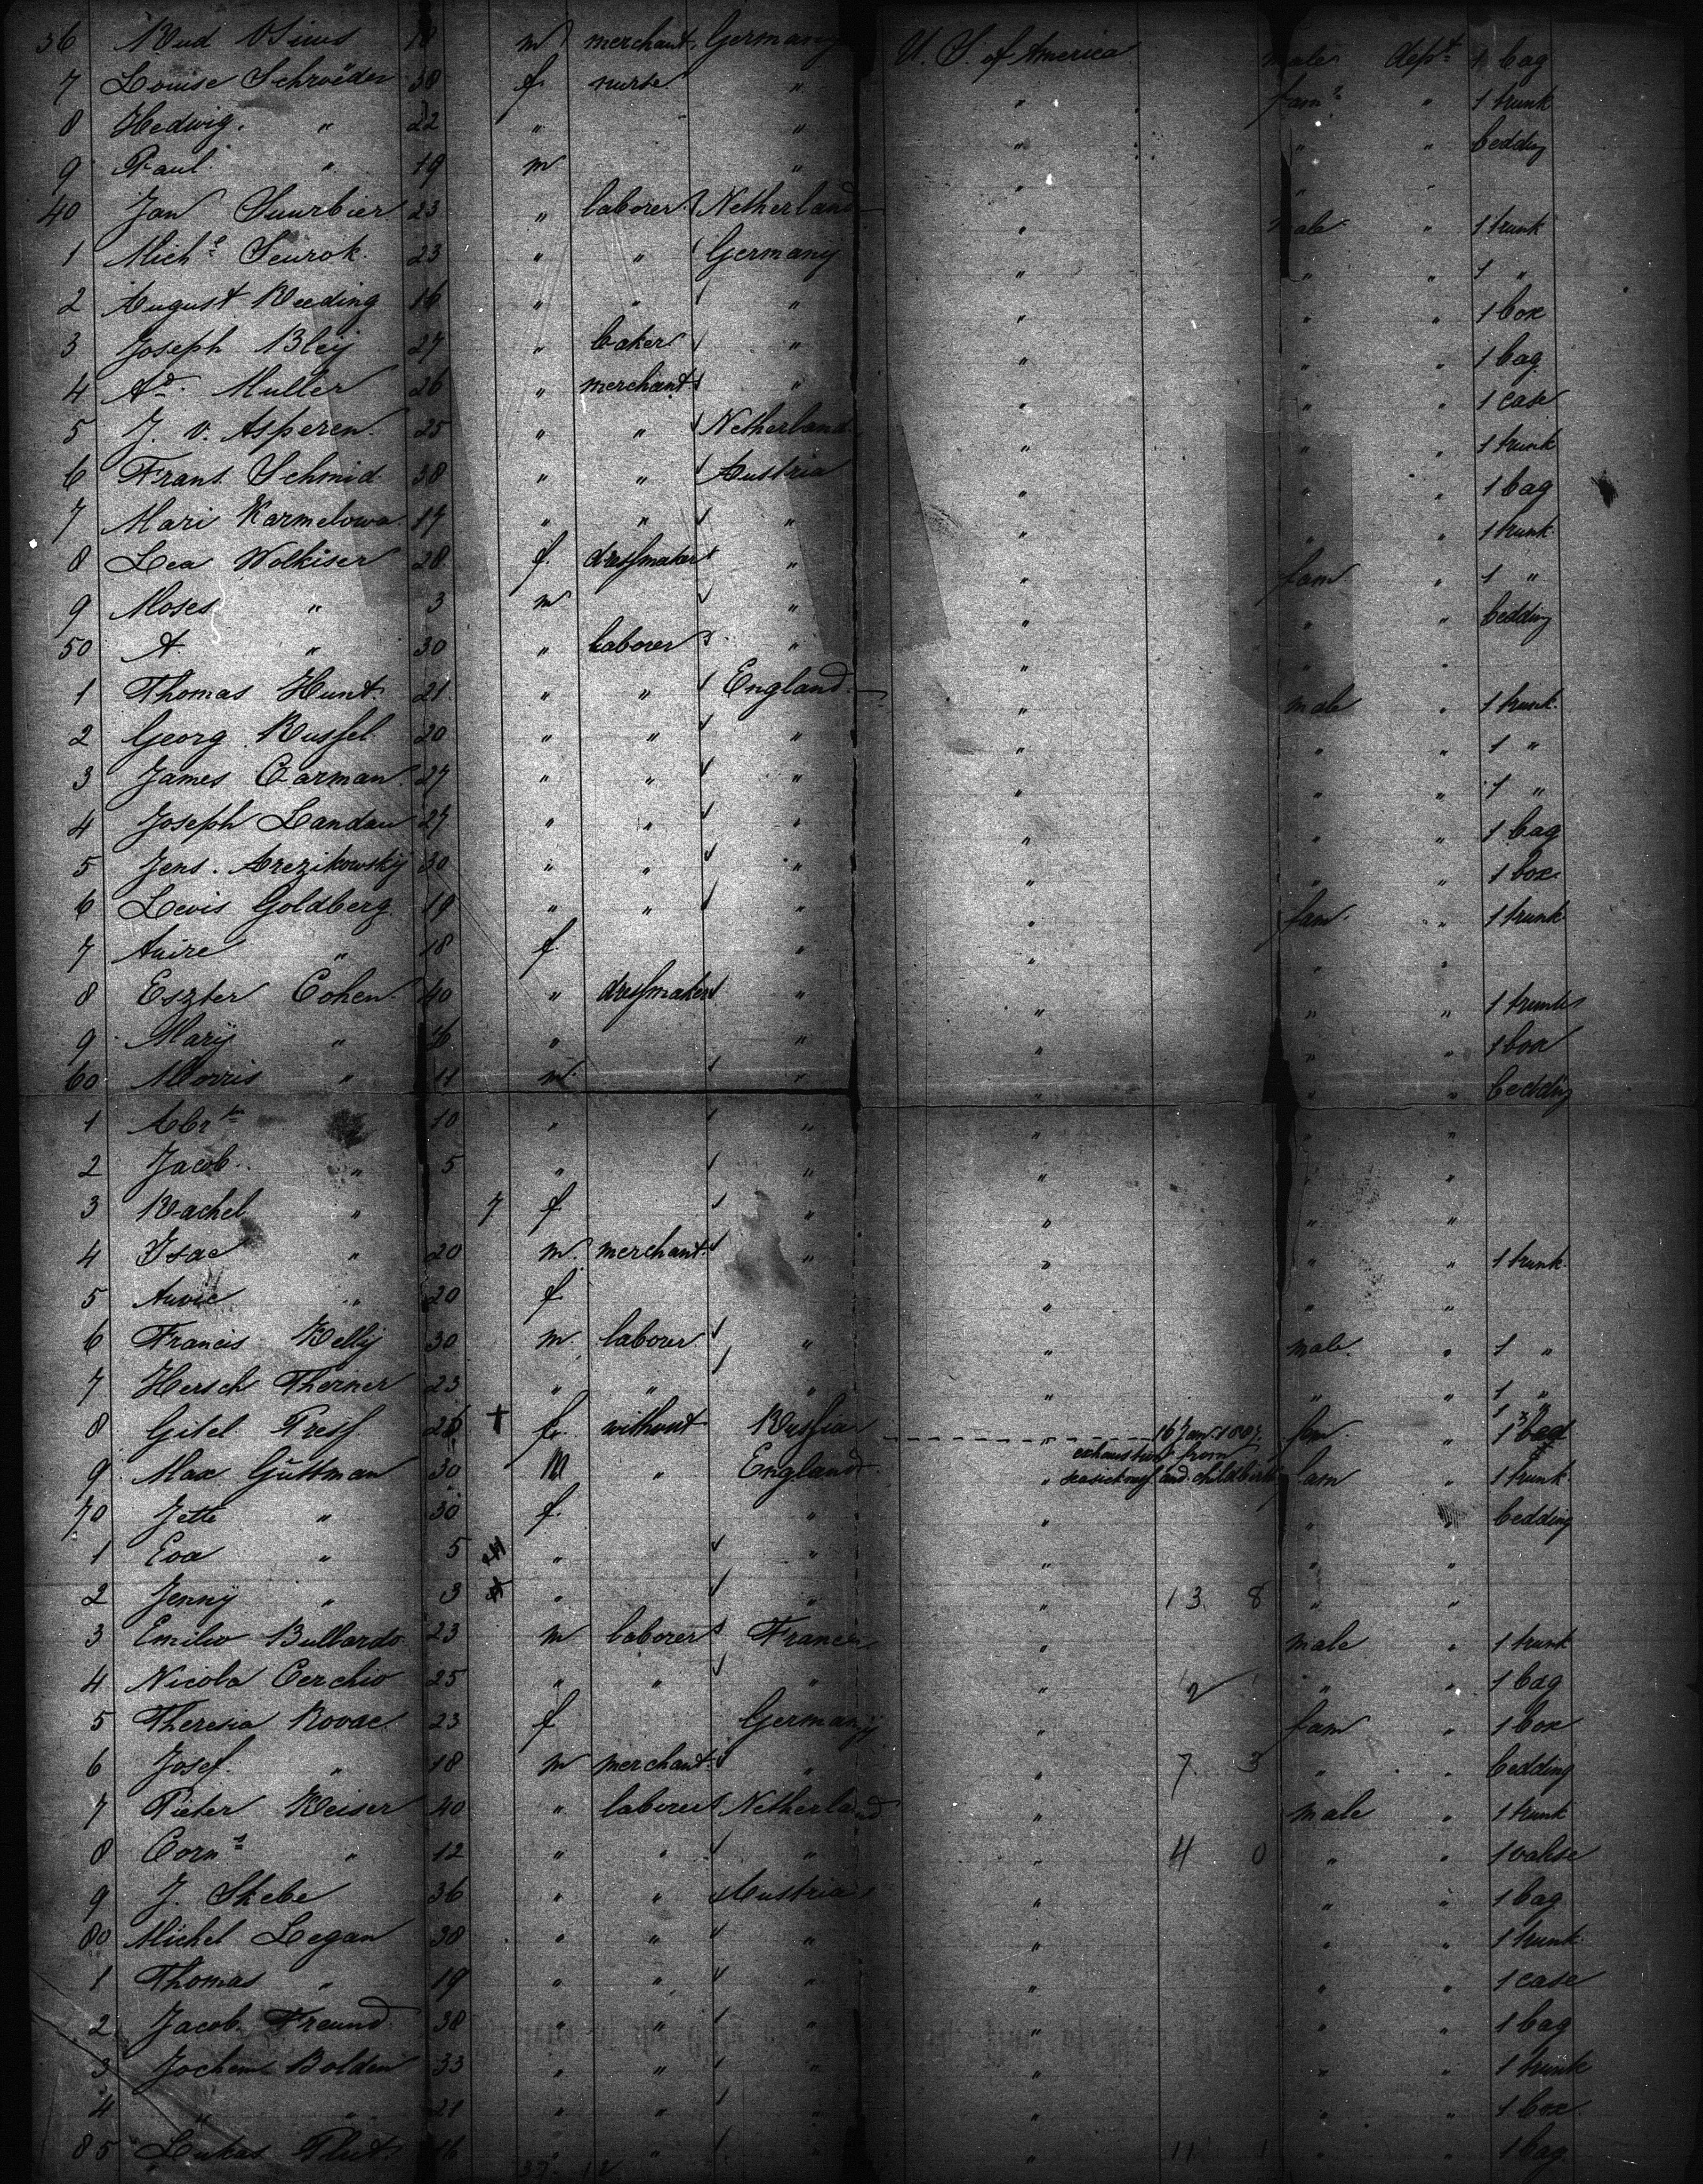 36 Rud Sims 18 m merchant Germany U. S. of America male dept 1 bag
7 Louise Schroëder 58 f. nurse " " fam. " 1 trunk
8 Hedwig. " 22 " " " " " bedding
9 Paul " 19 m " " " "
40 Jan Suurbier 23 " laborer Netherland " male " 1 trunk
1 Mich.l Seurok. 23 " " Germany " " " 1 "
2 August Reeding 16 " " " " " " 1 box
3 Joseph Bley 27 " baker " " " " 1 bag
4 Ad. Muller 26 " merchant " " " " 1 case
5 J. v. Asperen. 25 " " Netherland " " " 1 trunk
6 Frans Schmid 38 " " Austria " " " 1 bag
7 Mari Karmelowa 17 " " " " " " 1 trunk
8 Lea Wolkiser 28 f. dressmaker " " fam " 1 "
9 Moses " 3 m " " " " bedding
50 A. " 30 " laborer " " " "
1 Thomas Hunt. 21 " " England " male " 1 trunk.
2 Georg Russel 20 " " " " " " 1 "
3 James Carman 27 " " " " " " 1 "
4 Joseph Landau 27 " " " " " " 1 bag
5 Jens. Arezikowskij 30 " " " " " " 1 box
6 Levis Goldberg 19 " " " " fam. " 1 trunk
7 " 18 f. " " " "
8 Eszter Cohen 40 " dressmaker " " " " 1 trunk
9 Marij " 16 " " " " " 1 box
60 Morris " 11 m. " " " " bedding
1 Abrm 10 " " " " "
2 Jacob " 5 " " " " "
3 Rachel " 7 f " " " "
4 Isac " 20 m. merchant " " " " 1 trunk.
5 " 20 f. " " "
6 Francis Kellij 30 m. labourer " " male. " 1 "
7 Hersch Therner 23 " " " " " " 1 "
8 Gitel Press 26 + f. without Russia " 16 Jan. 1887. fam. " 1 bed
exhaustion from
9 Max Güttman 30 M " England " seasickness and childbirth fam " 1 trunk
70 Jette " 30 f. " " " " bedding
1 Eva " 5 4 " " " " "
2 Jenny " 3 " " " 13 8 " "
3 Emilio Bullardo 23 m laborer France " male " 1 trunk
4 Nicola Cerchio 25 " " " " 2 " " 1 bag
5 Theresia Kovac 23 f Germany " fam " 1 box
6 Josef. " 18 m merchant. " " 7 3 " " bedding
7 Pieter Keiser 40 " laborer Netherland " male " 1 trunk
8 Corn.s " 12 " " " " 4 0 " " 1 valise
9 J. Skebe 36 " " Austria " " " 1 bag
80 Michel Legan 38 " " " " " " 1 trunk
1 Thomas " 19 " " " " " " 1 case
2 Jacob Freund 38 " " " " " " 1 bag
3 Jochem Bolden 33 " " " " " " 1 trunk
4 " " 21 " " " " " " 1 box
85 Lukas Plut. 16 " " " " 11 1 " " 1 bag
37 12